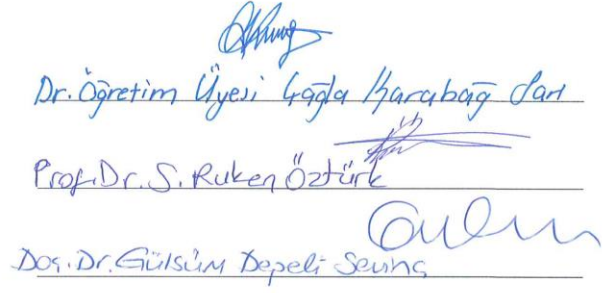 Dr. Öğretim Üyesi Çağla Karabağ Sarı
Prof. Dr. S. Ruken Öztürk
Doç. Dr. Gülsüm Depeli Sevinç